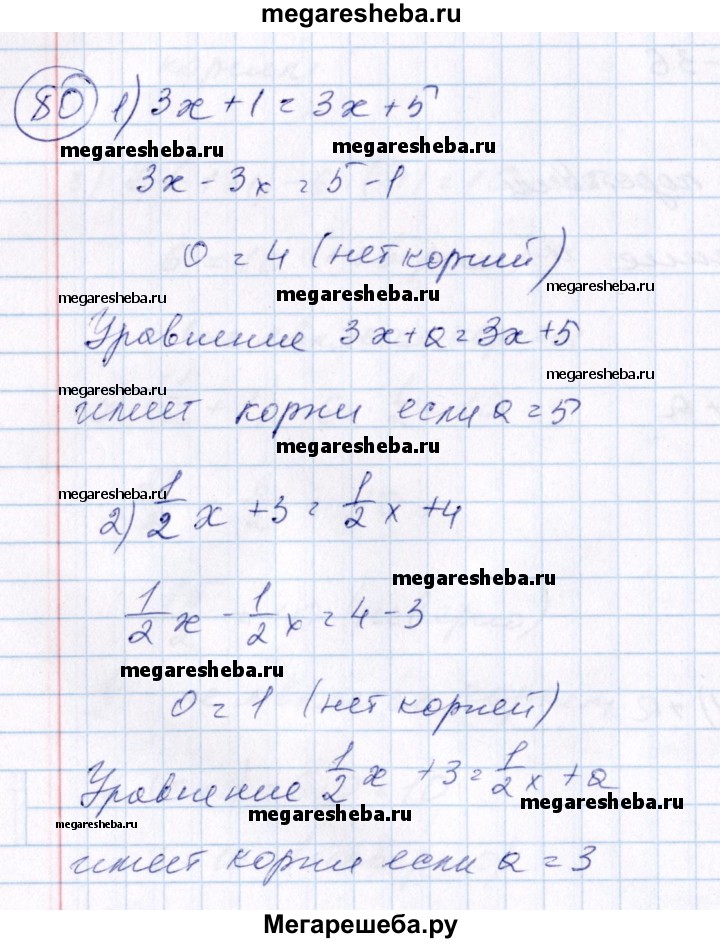 megaresheba.ru
80 1) 3x + 1 = 3x + 5
megaresheba.ru megaresheba.ru
3x - 3x = 5 - 1
0 = 4 (нет корний)
megaresheba.ru megaresheba.ru megaresheba.ru
Уравнение 3x + a = 3x + 5
megaresheba.ru megaresheba.ru
имеет корни если a = 5
megaresheba.ru
megaresheba.ru
2) 1/2 x + 3 = 1/2 x + 4
megaresheba.ru
1/2 x - 1/2 x = 4 - 3
megaresheba.ru
0 = 1 (нет корней)
Уравнение 1/2 x + 3 = 1/2 x + a
megaresheba.ru megaresheba.ru megaresheba.ru
имеет корни если a = 3
Мегарешеба.ру